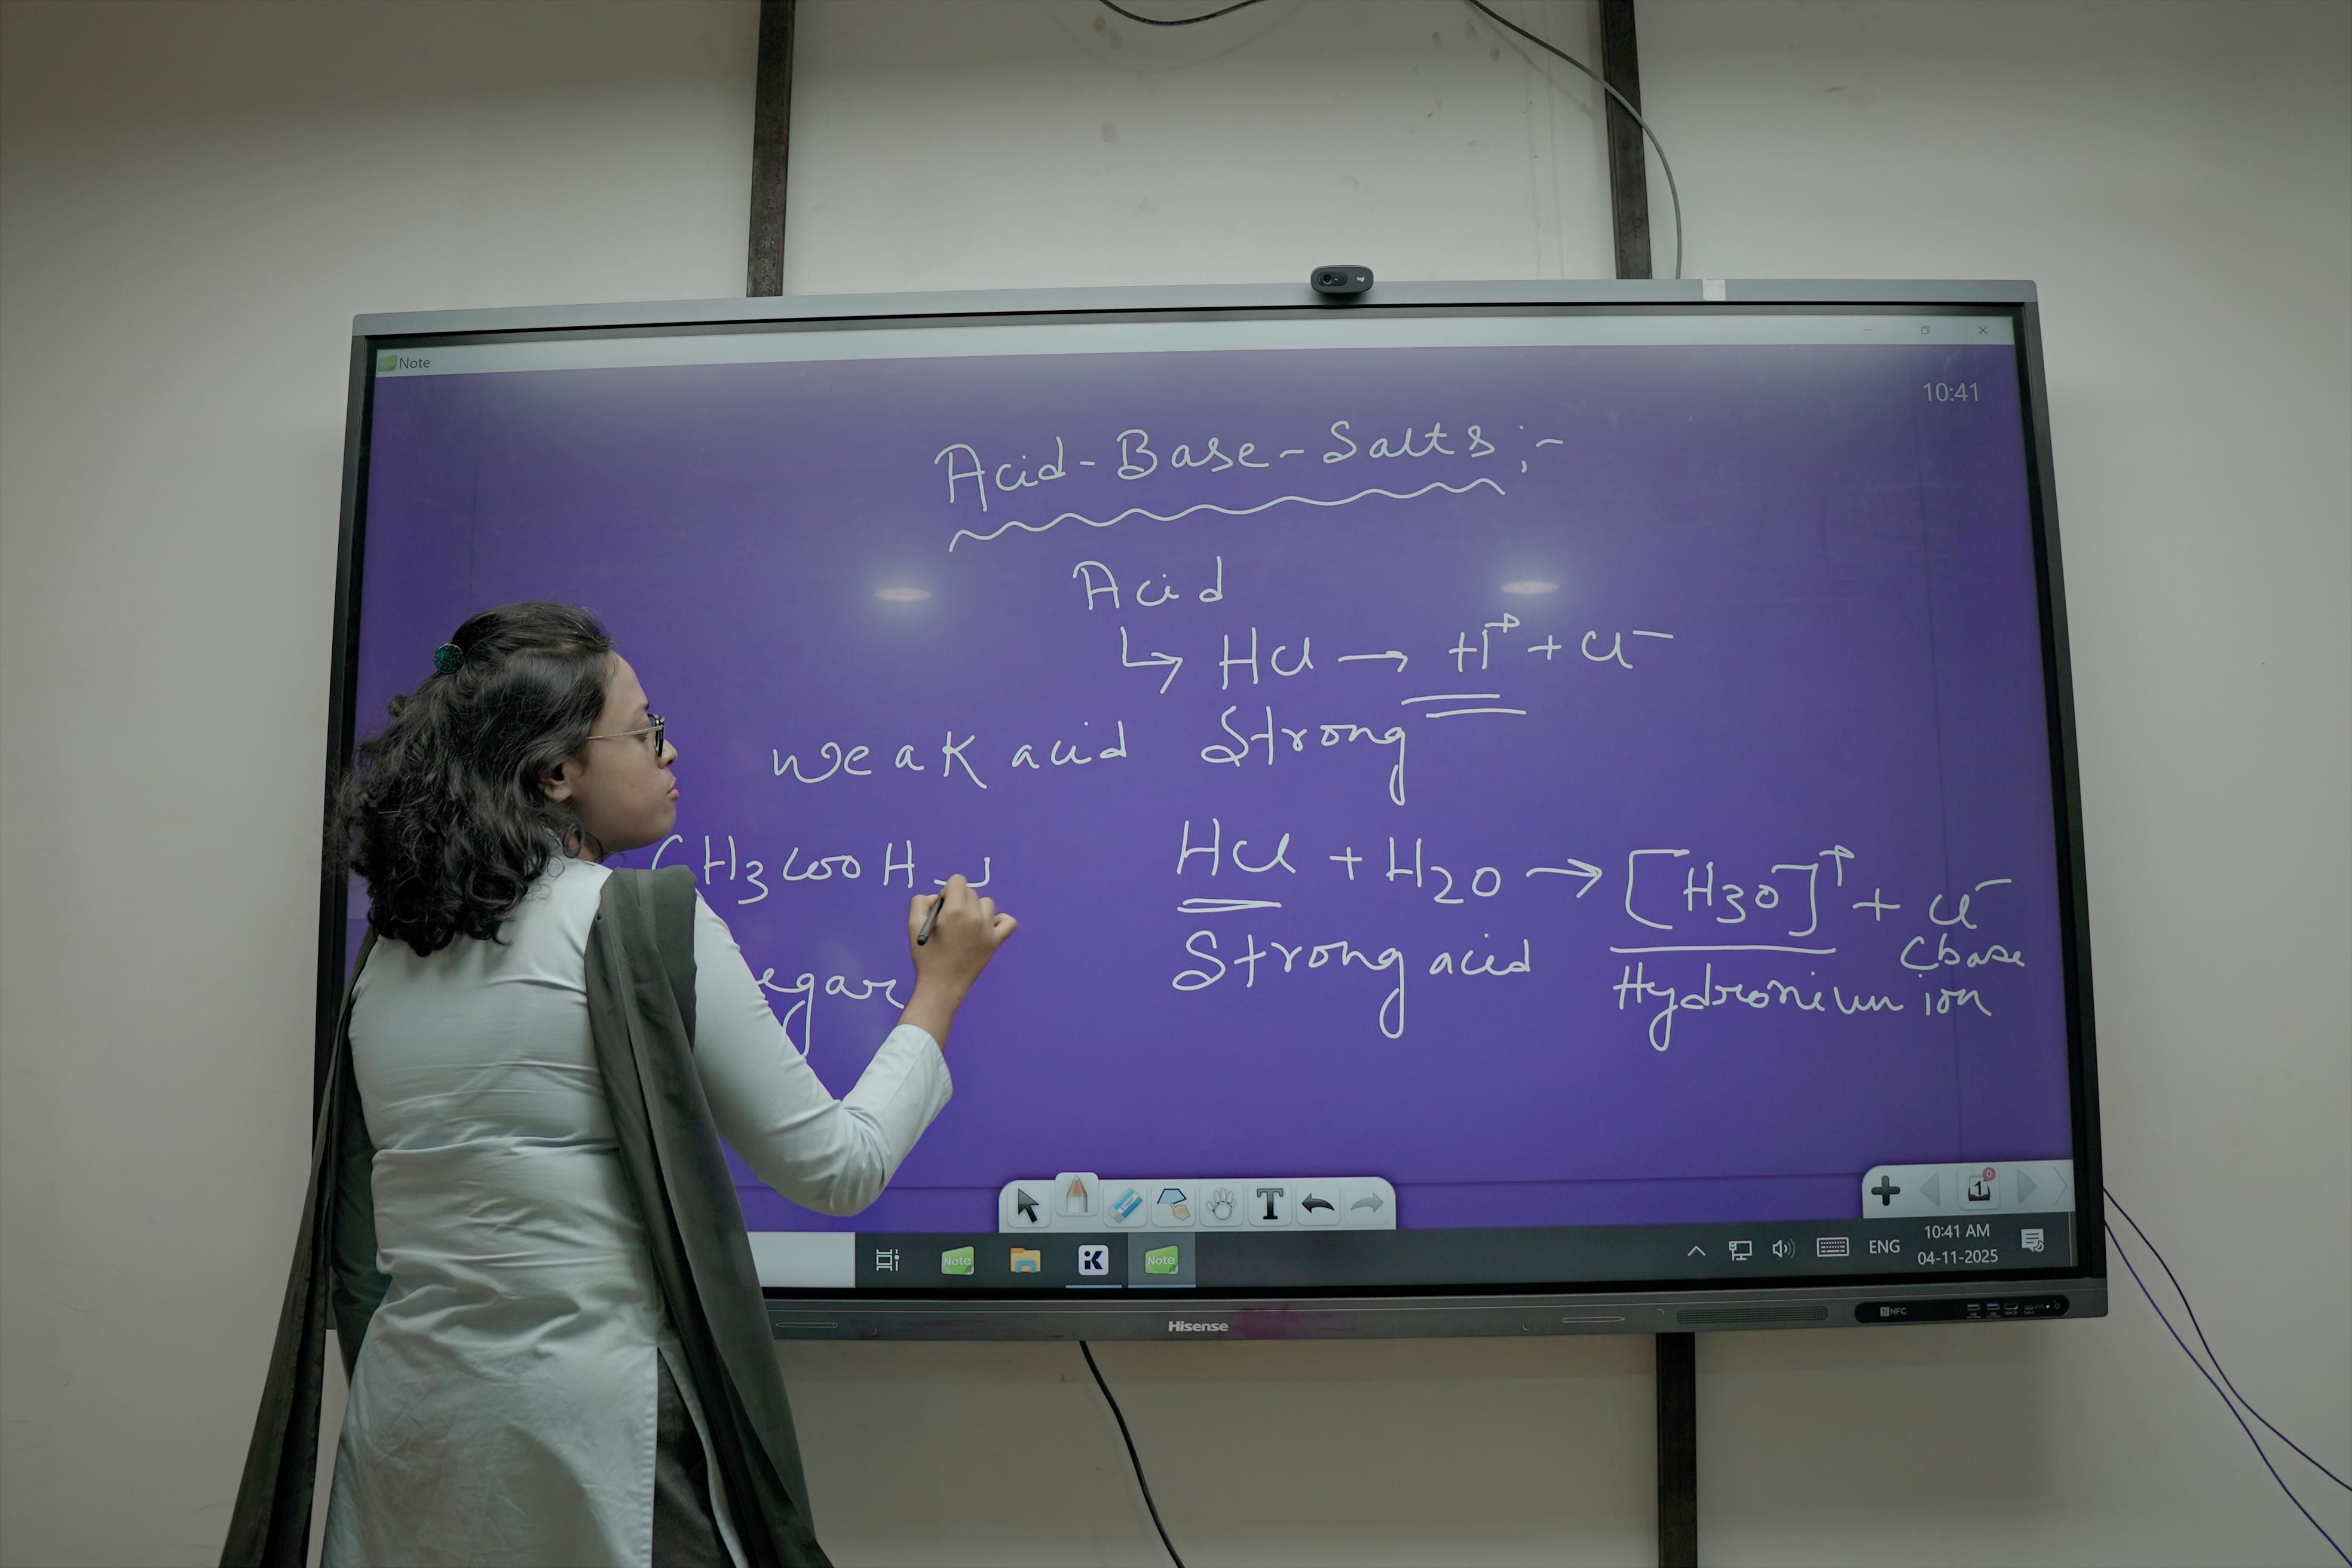 Note
10:41
Acid-Base-Salts;-
Acid
↳ HCl → H⁺ + Cl⁻
Weak acid Strong
CH3COOH
HCl + H2O → [H3O]⁺ + Cl⁻
Strong acid
Cbase
Hydronium ion
egar
T
1
0
Note
K
Note
ENG
10:41 AM
04-11-2025
Hisense
NFC